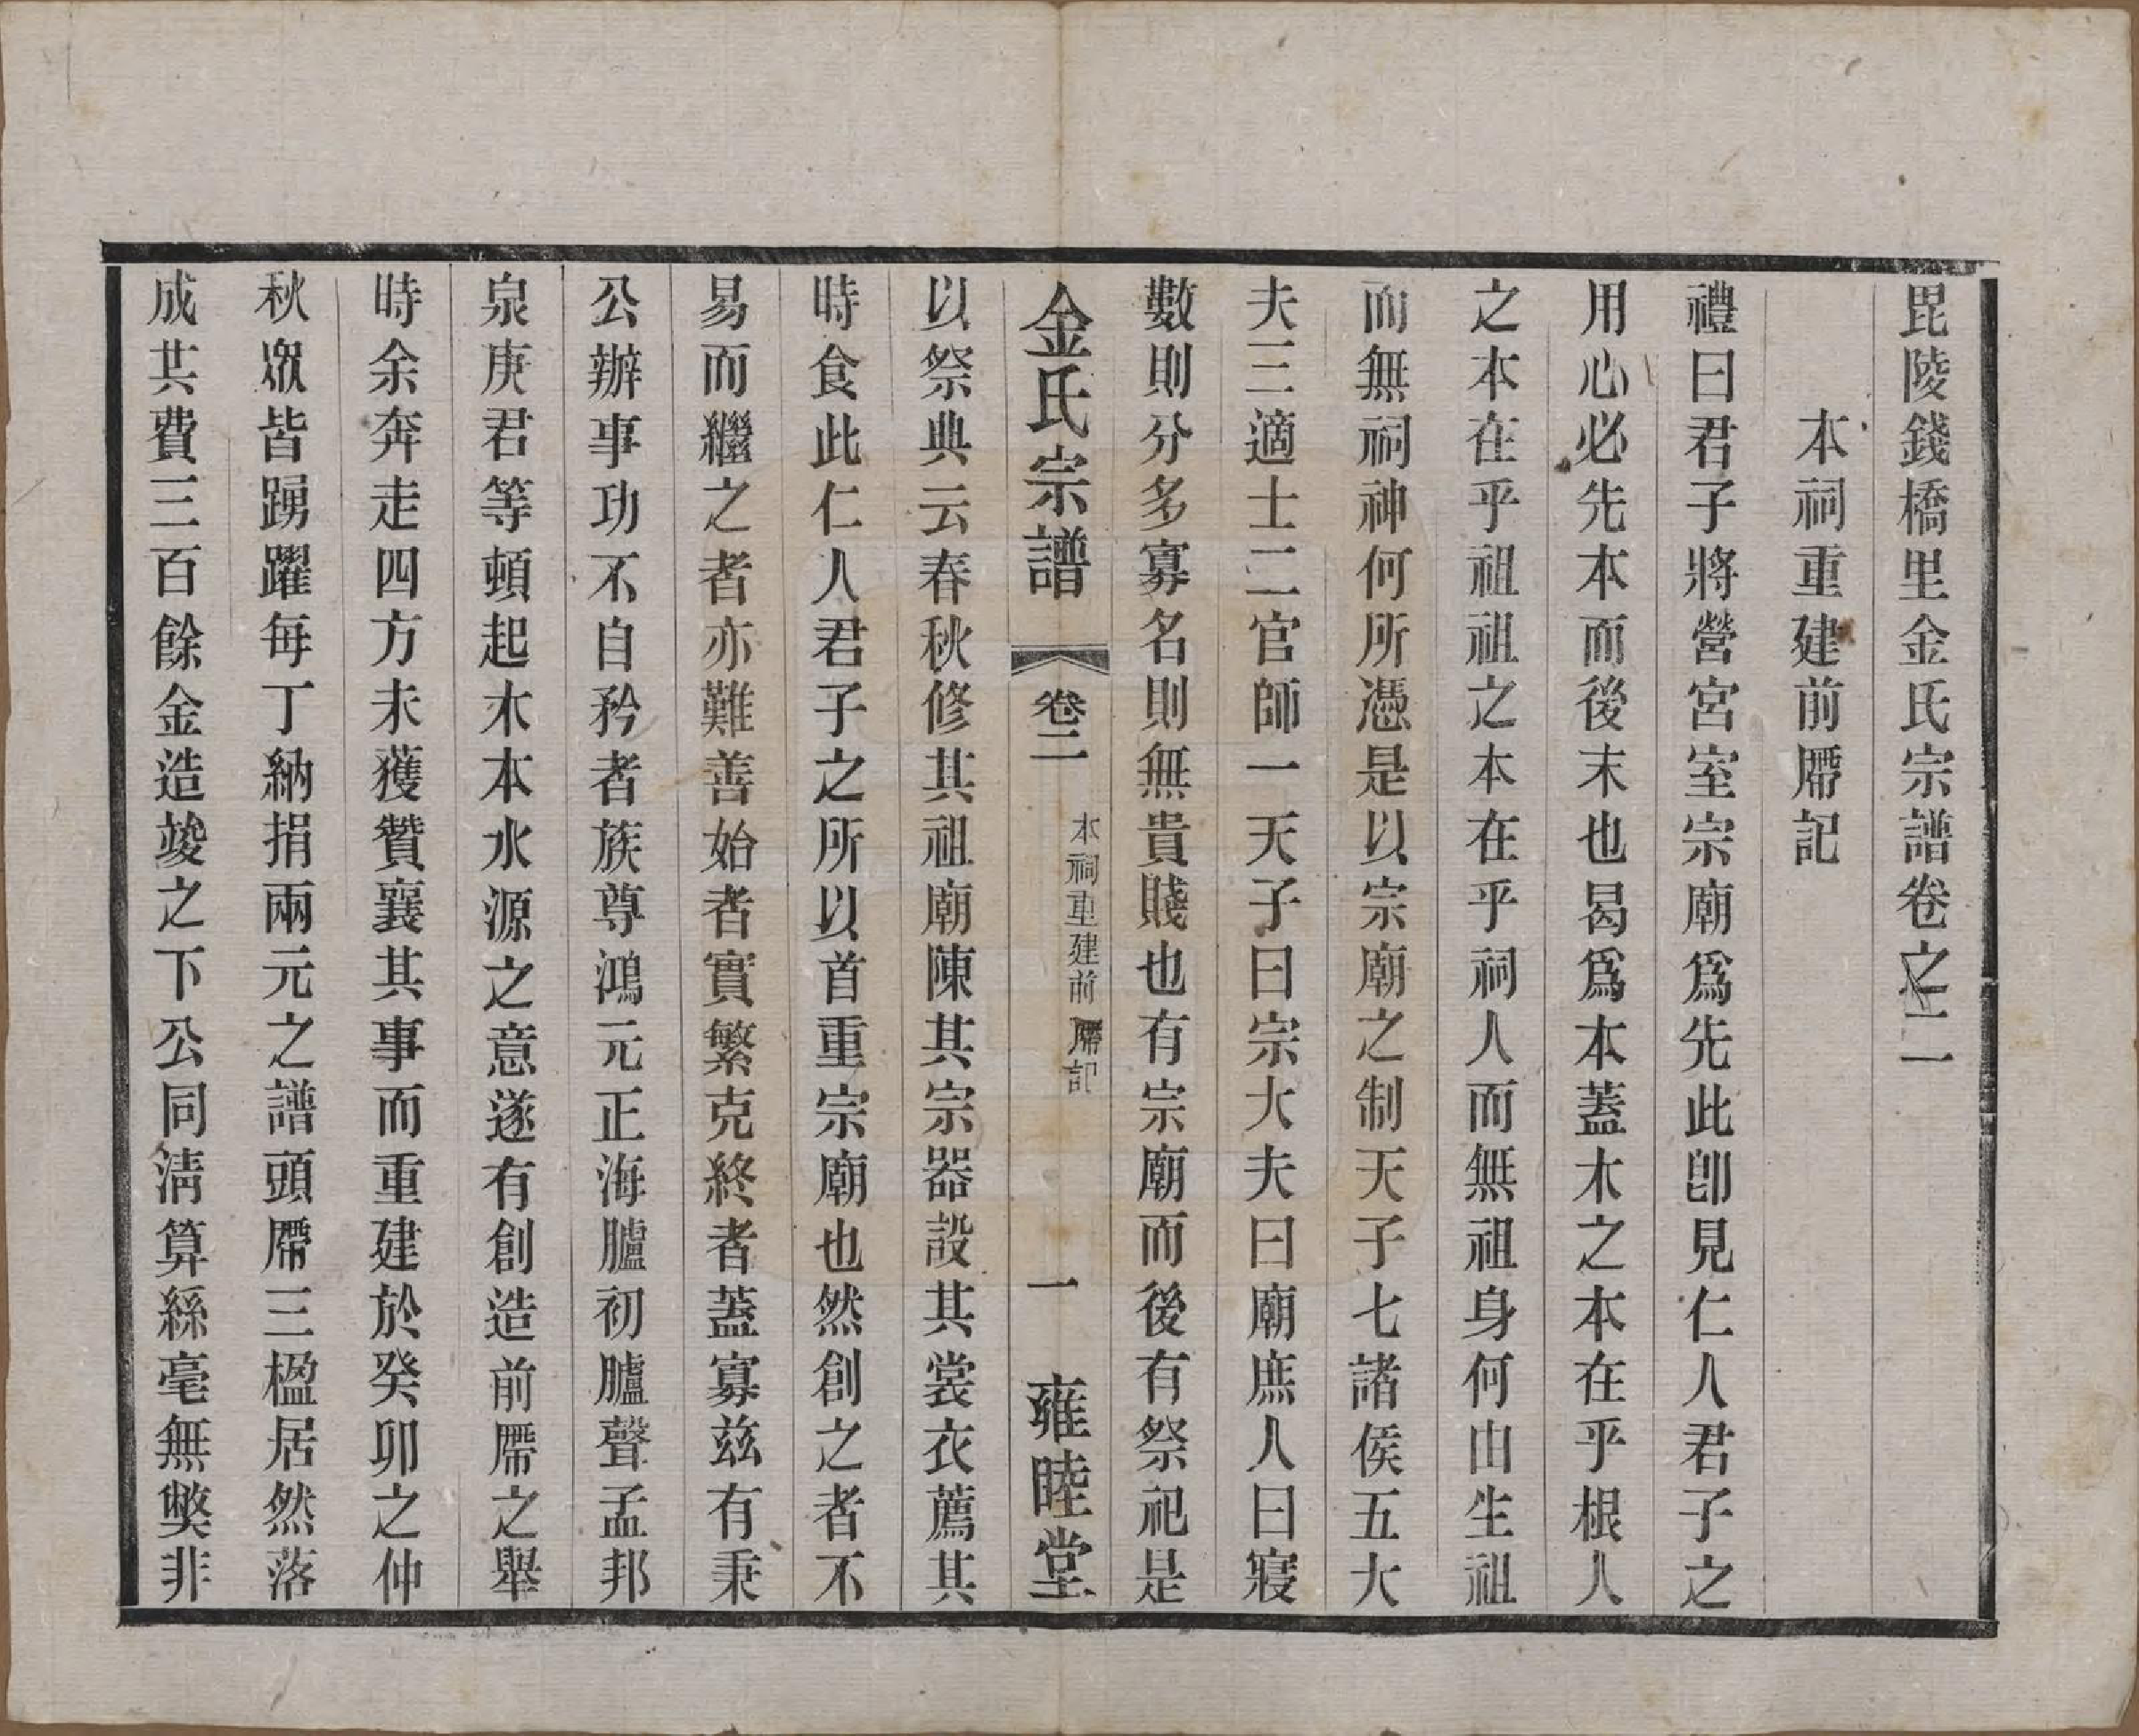 毘陵錢橋里金氏宗譜卷之二
本祠重建前厴記
禮曰君子將營宮室宗廟爲先此卽見仁人君子之
用心必先本而後末也曷爲本蓋木之本在乎根人
之本在乎祖祖之本在乎祠人而無祖身何由生祖
而無祠神何所憑是以宗廟之制天子七諸侯五大
夫三適士二官師一天子曰宗大夫曰廟庶人曰寢
數則分多寡名則無貴賤也有宗廟而後有祭祀是
金氏宗譜
卷二
本祠重建前厴記
一
雍睦堂
以祭典云春秋修其祖廟陳其宗器設其裳衣薦其
時食此仁人君子之所以首重宗廟也然創之者不
易而繼之者亦難善始者實繁克終者蓋寡茲有秉
公辦事功不自矜者族尊鴻元正海臚初臚聲孟邦
泉庚君等頓起木本水源之意遂有創造前厴之舉
時余奔走四方未獲贊襄其事而重建於癸卯之仲
秋眾皆踴躍每丁納捐兩元之譜頭厴三楹居然落
成共費三百餘金造竣之下公同淸算絲毫無獘非